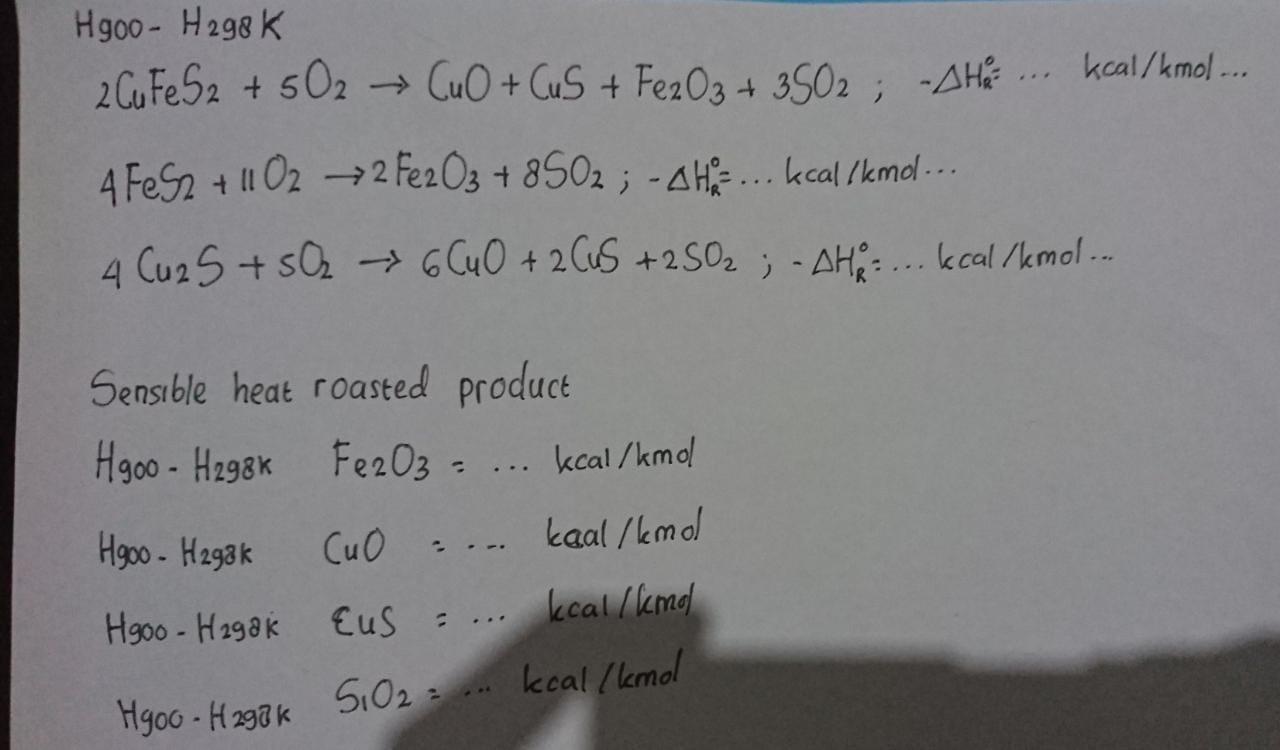 H900 - H298K
2CuFeS2 + 5O2 → CuO + CuS + Fe2O3 + 3SO2 ; -ΔH°R= ... kcal/kmol...
4FeS2 + 11O2 → 2Fe2O3 + 8SO2 ; -ΔH°R= ... kcal/kmol...
4Cu2S + 5O2 → 6CuO + 2CuS + 2SO2 ; -ΔH°R= ... kcal/kmol...
Sensible heat roasted product
H900 - H298K Fe2O3 = ... kcal/kmol
H900 - H298K CuO = ... kcal/kmol
H900 - H298K CuS = ... kcal/kmol
H900 - H298K SiO2 = ... kcal/kmol